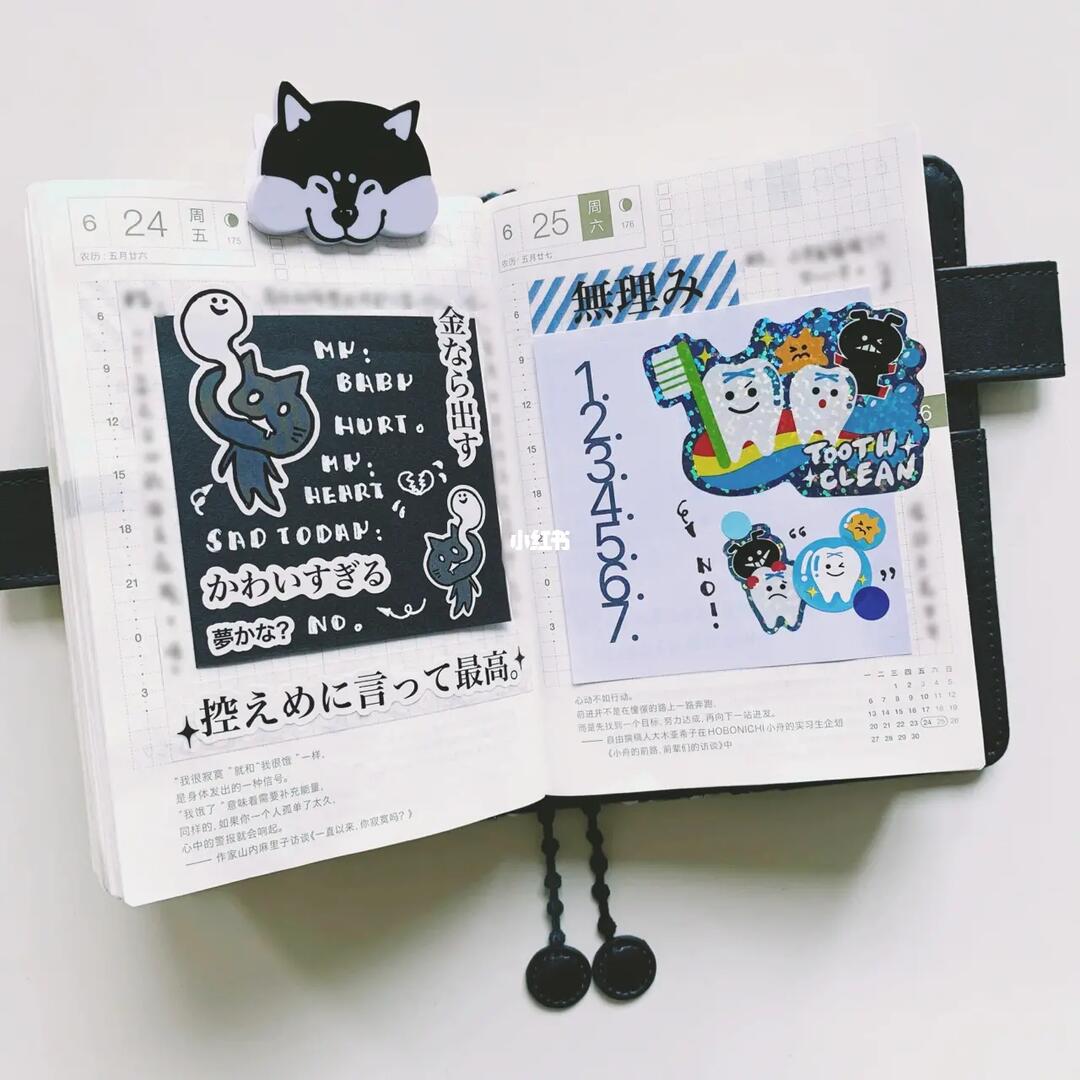 6 24 周五
175
农历：五月廿六
金なら出す
MY:
BABY
HURT。
MY:
HEART
SAD TODAY:
かわいすぎる
夢かな？ NO。
控えめに言って最高。
6
9
12
15
18
21
0
3
“我很寂寞”就和“我很饿”一样，
是身体发出的一种信号。
“我饿了”意味着需要补充能量，
同样的，如果你一个人孤单了太久，
心中的警报就会响起。
—— 作家山内麻里子访谈《一直以来，你寂寞吗？》
小红书
6 25 周六
176
农历：五月廿七
無理み
1.
2.
3.
4.
5.
6.
7.
TOOTH
CLEAN
NO!
“ ”
6
6
9
12
15
18
0
3
心动不如行动。
前进并不是在憧憬的路上一路奔跑，
而是先找到一个目标，努力达成，再向下一站进发。
—— 自由撰稿人大木亚希子在HOBONICHI小舟的实习生企划
《小舟的前路，前辈们的访谈》中
一 二 三 四 五 六 日
1 2 3 4 5
6 7 8 9 10 11 12
13 14 15 16 17 18 19
20 21 22 23 24 25 26
27 28 29 30